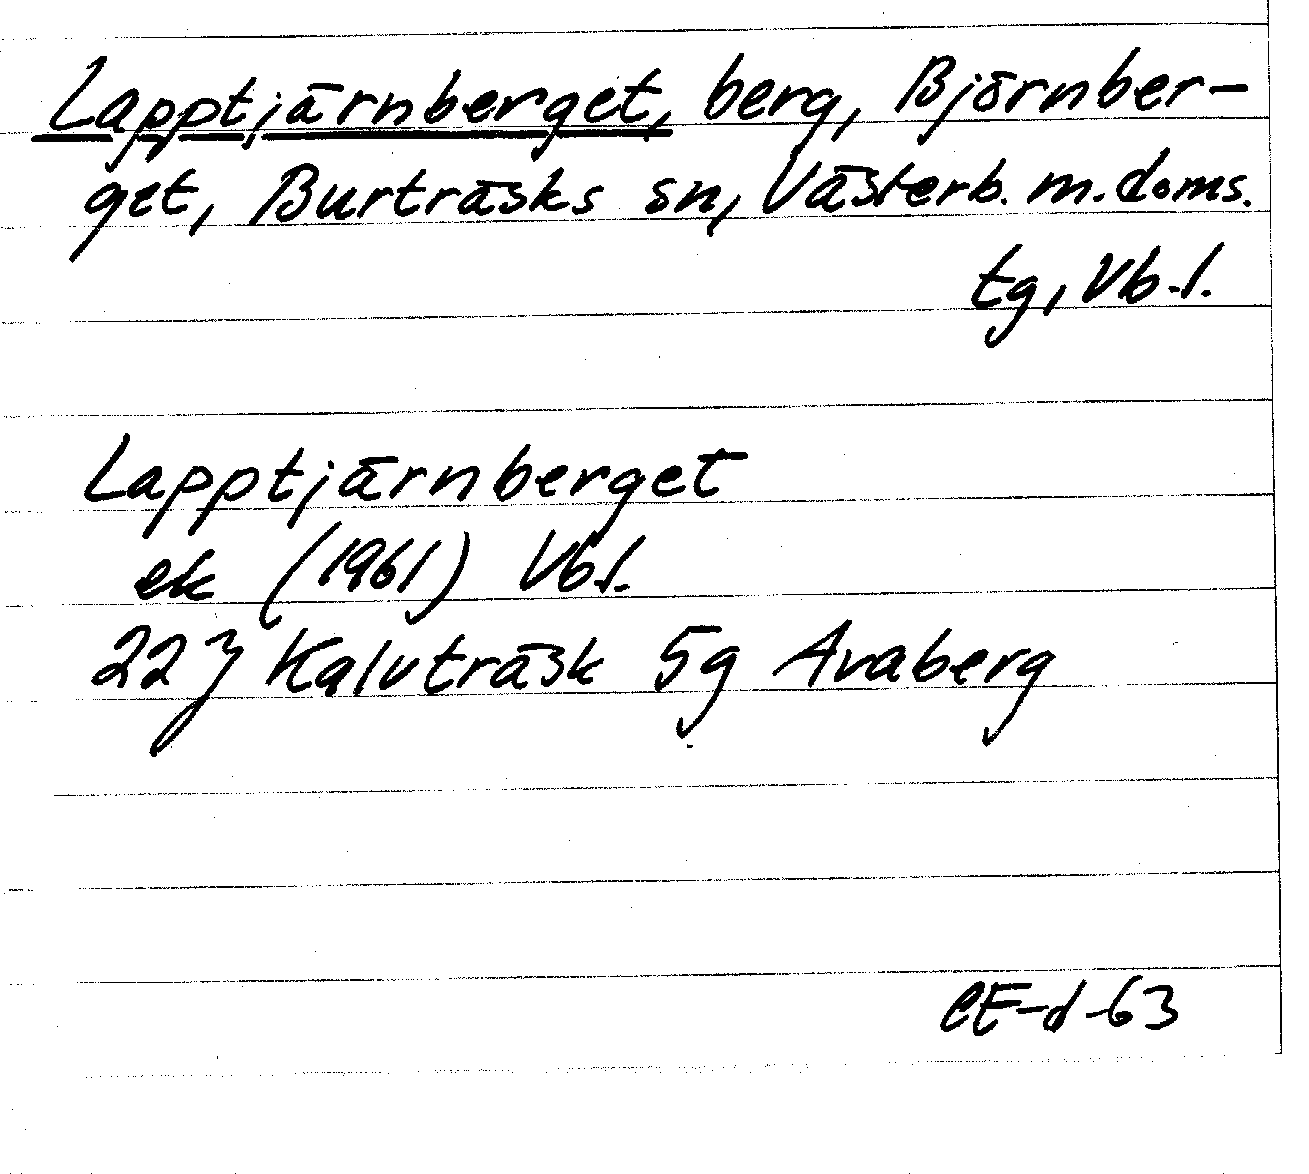 Lapptjärnberget, berg, Björnber-
get, Burträsks sn, Västerb. m. doms.
tg, Vb. l.
Lapptjärnberget
ek (1961) Vb l.
22 J Kalvträsk 5g Avaberg
CE-d-63